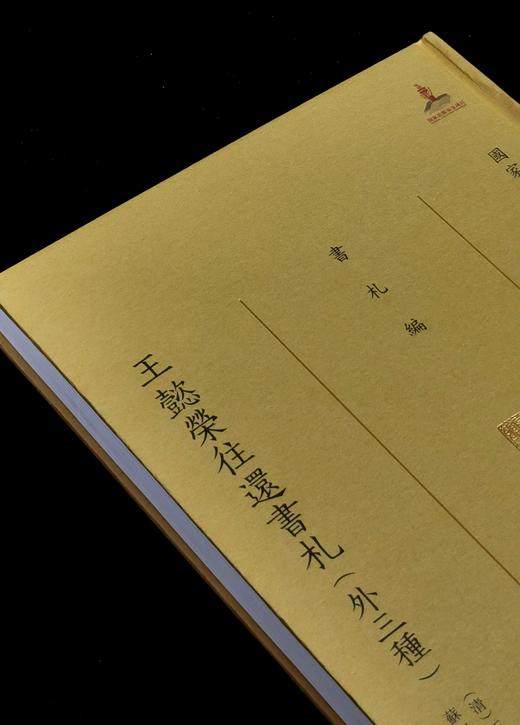 國家
書札編
王懿榮往還書札（外三種）
（清）
蘇